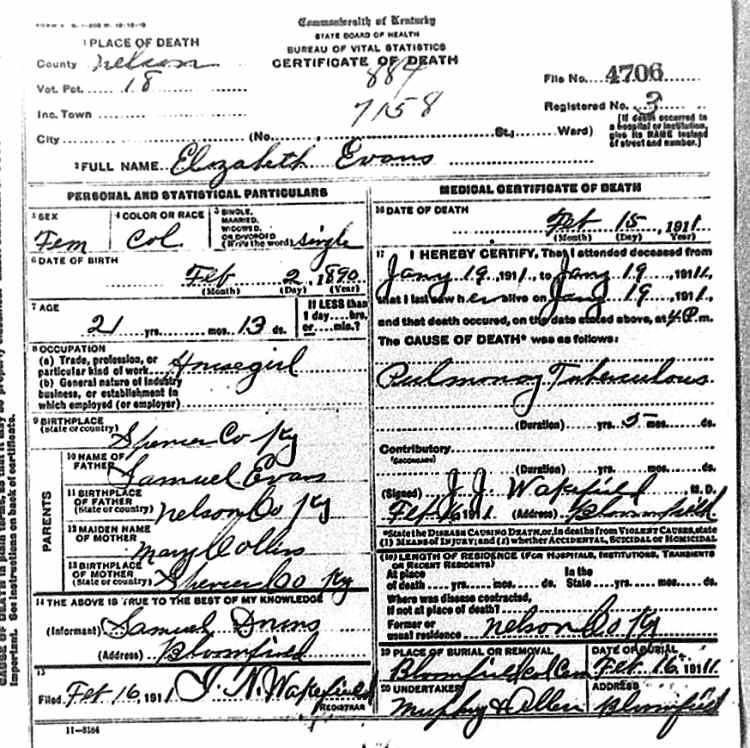 Commonwealth of Kentucky
STATE BOARD OF HEALTH
BUREAU OF VITAL STATISTICS
CERTIFICATE OF DEATH
1 PLACE OF DEATH
County Nelson
Vot. Pct. 18
Inc. Town
City (No. St., Ward)
884
7158
File No. 4706
Registered No. 3
[If death occurred in
a hospital or institution,
give its NAME instead
of street and number.]
2 FULL NAME Elizabeth Evans
PERSONAL AND STATISTICAL PARTICULARS
3 SEX
Fem
4 COLOR OR RACE
Col
5 SINGLE,
MARRIED,
WIDOWED,
OR DIVORCED
(Write the word) single
6 DATE OF BIRTH
Feb 2, 1890
(Month) (Day) (Year)
7 AGE
21 yrs. mos. 13 ds.
If LESS than
1 day....hrs.
or....min.?
8 OCCUPATION
(a) Trade, profession, or
particular kind of work Housegirl
(b) General nature of industry
business, or establishment in
which employed (or employer)
9 BIRTHPLACE
(State or country) Spencer Co Ky
PARENTS
10 NAME OF
FATHER Samuel Evans
11 BIRTHPLACE
OF FATHER
(State or country) Nelson Co Ky
12 MAIDEN NAME
OF MOTHER
Mary Collins
13 BIRTHPLACE
OF MOTHER
(State or country) Spencer Co Ky
14 THE ABOVE IS TRUE TO THE BEST OF MY KNOWLEDGE
(Informant) Samuel
(Address) Bloomfield
15
Filed Feb 16, 1911 J. N. Wakefield
REGISTRAR
11-3184
MEDICAL CERTIFICATE OF DEATH
16 DATE OF DEATH
Feb 15, 1911
(Month) (Day) (Year)
17 I HEREBY CERTIFY, That I attended deceased from
Jany 19, 1911, to Jany 19, 1911,
that I last saw her alive on Jany 19, 1911,
and that death occured, on the date stated above, at 4 P.m.
The CAUSE OF DEATH* was as follows:
Pulmonay Tuberculous
(Duration) yrs. 5 mos. ds.
Contributory
(SECONDARY)
(Duration) yrs. mos. ds.
(Signed) J. J. Wakefield M. D.
Feb 16, 1911 (Address) Bloomfield
*State the DISEASE CAUSING DEATH, or, in deaths from VIOLENT CAUSES, state
(1) MEANS OF INJURY; and (2) whether ACCIDENTAL, SUICIDAL or HOMICIDAL
(18) LENGTH OF RESIDENCE (FOR HOSPITALS, INSTITUTIONS, TRANSIENTS
OR RECENT RESIDENTS)
At place In the
of death yrs. mos. ds. State yrs. mos. ds.
Where was disease contracted,
if not at place of death?
Former or
usual residence Nelson Co Ky
19 PLACE OF BURIAL OR REMOVAL
Bloomfield Col Cem
DATE OF BURIAL
Feb 16, 1911
20 UNDERTAKER
Murphy & Allen
ADDRESS
Bloomfield
important. See instructions on back of certificate.